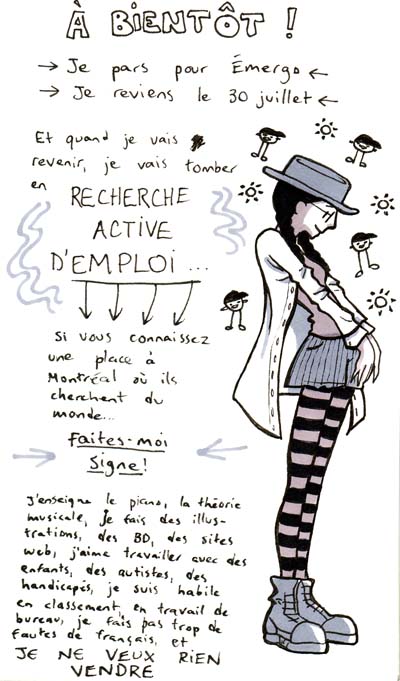 À BIENTÔT !
→ Je pars pour Émergo ←
→ Je reviens le 30 juillet ←
Et quand je vais
revenir, je vais tomber
en
RECHERCHE
ACTIVE
D'EMPLOI ...
Si vous connaissez
une place à
Montréal où ils
cherchent du
monde...
Faites-moi
Signe !
J'enseigne le piano, la théorie
musicale, je fais des illus-
trations, des BD, des sites
web, j'aime travailler avec des
enfants, des autistes, des
handicapés, je suis habile
en classement, en travail de
bureau, je fais pas trop de
fautes de français, et
JE NE VEUX RIEN
VENDRE